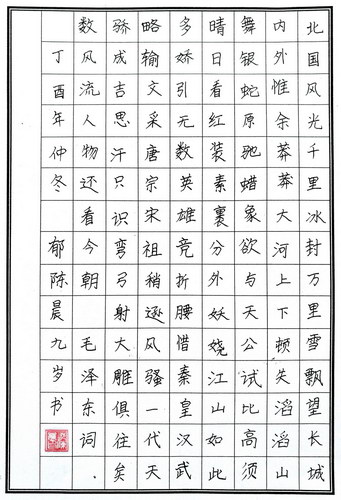 北国风光千里冰封万里雪飘望长城
内外惟余莽莽大河上下顿失滔滔山
舞银蛇原驰蜡象欲与天公试比高须
晴日看红装素裹分外妖娆江山如此
多娇引无数英雄竞折腰惜秦皇汉武
略输文采唐宗宋祖稍逊风骚一代天
骄成吉思汗只识弯弓射大雕俱往矣
数风流人物还看今朝 毛泽东词.
丁酉年仲冬 郁陈晨九岁书